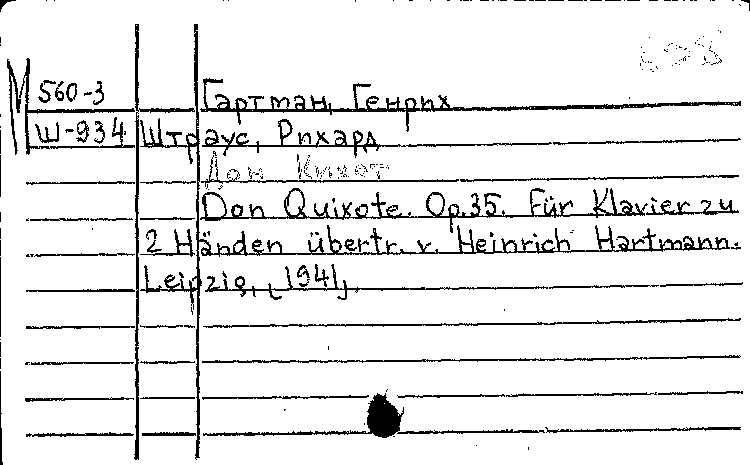 М 560-3 Гартман, Генрих
Ш-934 Штраус, Рихард
Дон Кихот
Don Quixote. Op.35. Für Klavier zu
2 Händen übertr. v. Heinrich Hartmann.
Leipzig, [1941].